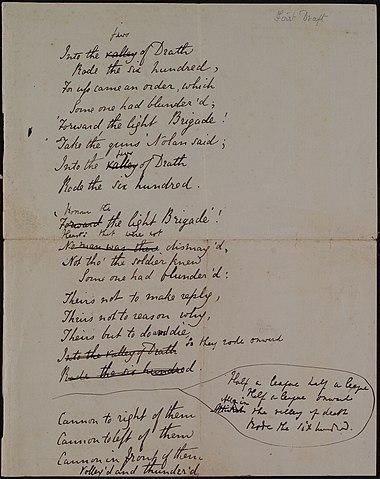 First Draft
jaws
Into the valley of Death
Rode the six hundred,
For up came an order, which
Some one had blunder'd;
'Forward the light Brigade!
'Take the guns' Nolan said;
jaws
Into the valley of Death
Rode the six hundred.
the
Forward the light Brigade'!
Hearts that were not
No man was there dismay'd,
Not tho' the soldier knew
Some one had blunder'd:
Theirs not to make reply,
Theirs not to reason why,
Theirs but to do and die
So they rode onward
Into the valley of Death
Rode the six hundred.
Half a league half a league
Half a league onward
All in
the valley of death
Rode the six hundred.
Cannon to right of them
Cannon to left of them
Cannon in front of them
Volley'd and thunder'd